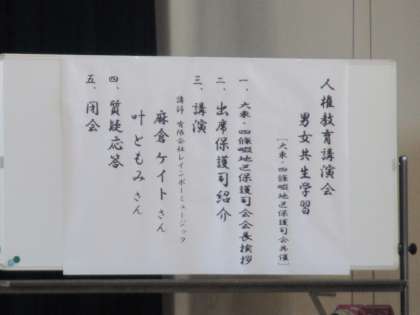 人権教育講演会
男女共生学習
［大東・四條畷地区保護司会共催］
一、大東・四條畷地区保護司会会長挨拶
二、出席保護司紹介
三、講演
講師 有限会社レインボーミュージック
麻倉ケイトさん
叶ともみさん
四、質疑応答
五、閉会